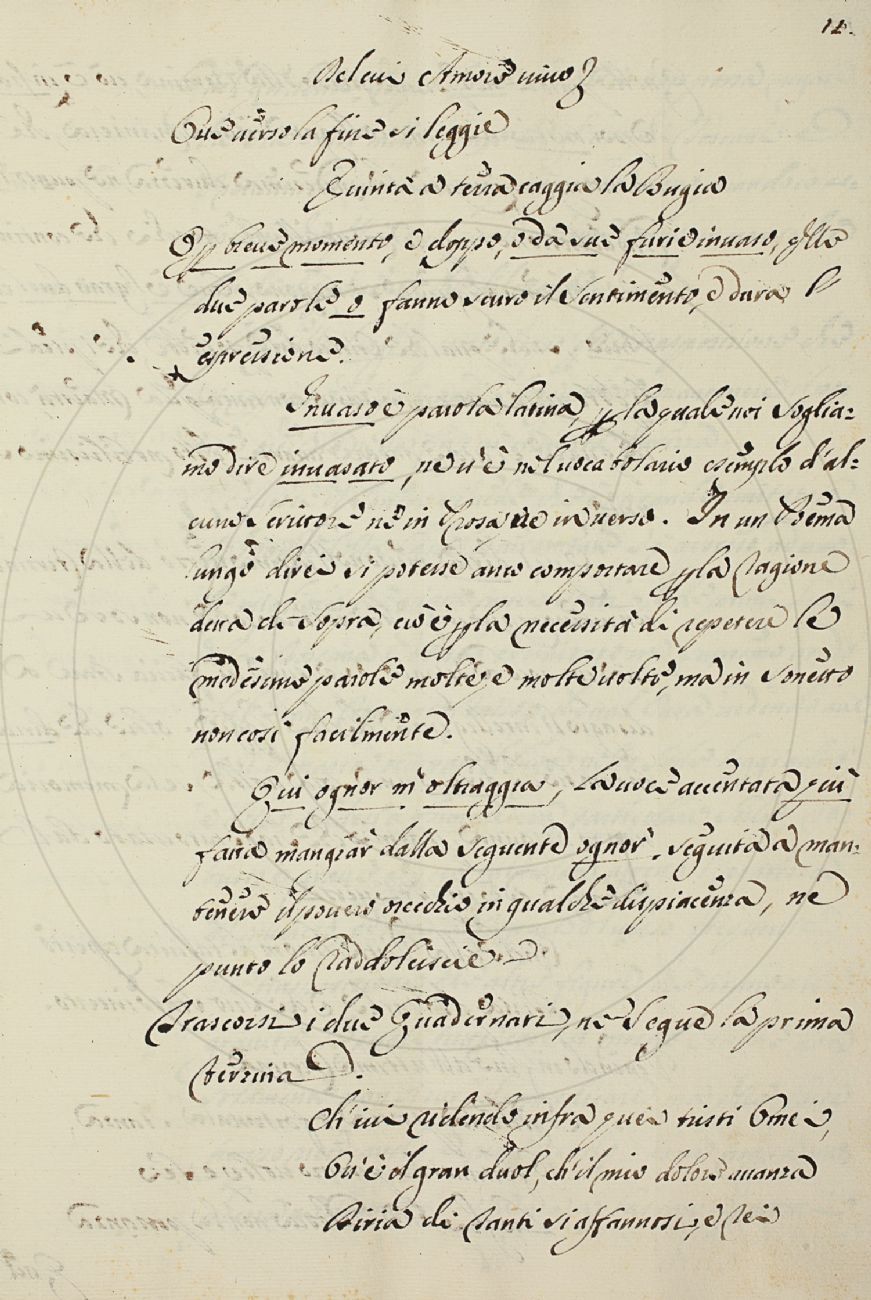 12.
Del cui Amore vivo
Ove verso la fine si leggie
Quinta a terra caggia la Bugia
breve momento, e doppo, e da sue furie invaso, q.lle
due parole o fanno scuro il Sentimento, e dura l'
espressione.
Invaso è parola latina, p la quale noi Soglia=
mo dire invasato, ne v'è nel vocabolario esemplo d'al=
cuno Scrittore nè in Prosa, ne in verso. In un Poema
lungo direi si potesse anco comportare p la ragione
detta di Sopra, cioè p la necessità di repetere le
medesime parole molte, e molte volte, ma in Sonetto
non così facilmente.
Qui ognor m'oltraggia, La voce accentata più
fatta mangiar dalla Seguente ognor, Seguita a man=
tenere il povero orecchio in qualche dispiacenza, ne
punto lo raddoliscie.
Trascorsi i due Quadernari, ne Segue la prima
terzina.
Ch'ivi ridendo infra quei tristi Omei,
Ov'è il gran duol, ch'il mio dolore avanza
di tanti si affannosi, e rei